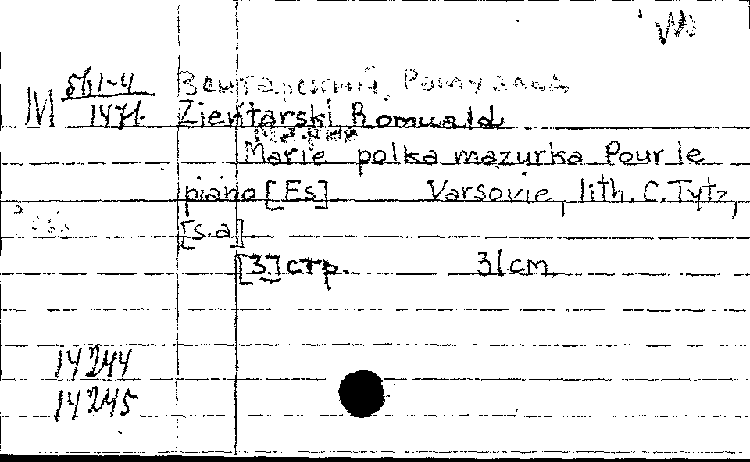 М 561-4
1471.
Зентарский, Ромуальд
Zientarski Romuald
Marie polka mazurka Pour le
piano [Es] Varsovie, lith. C. Tytz,
[s.a].
[3] стр. 31cm.
14244
14245